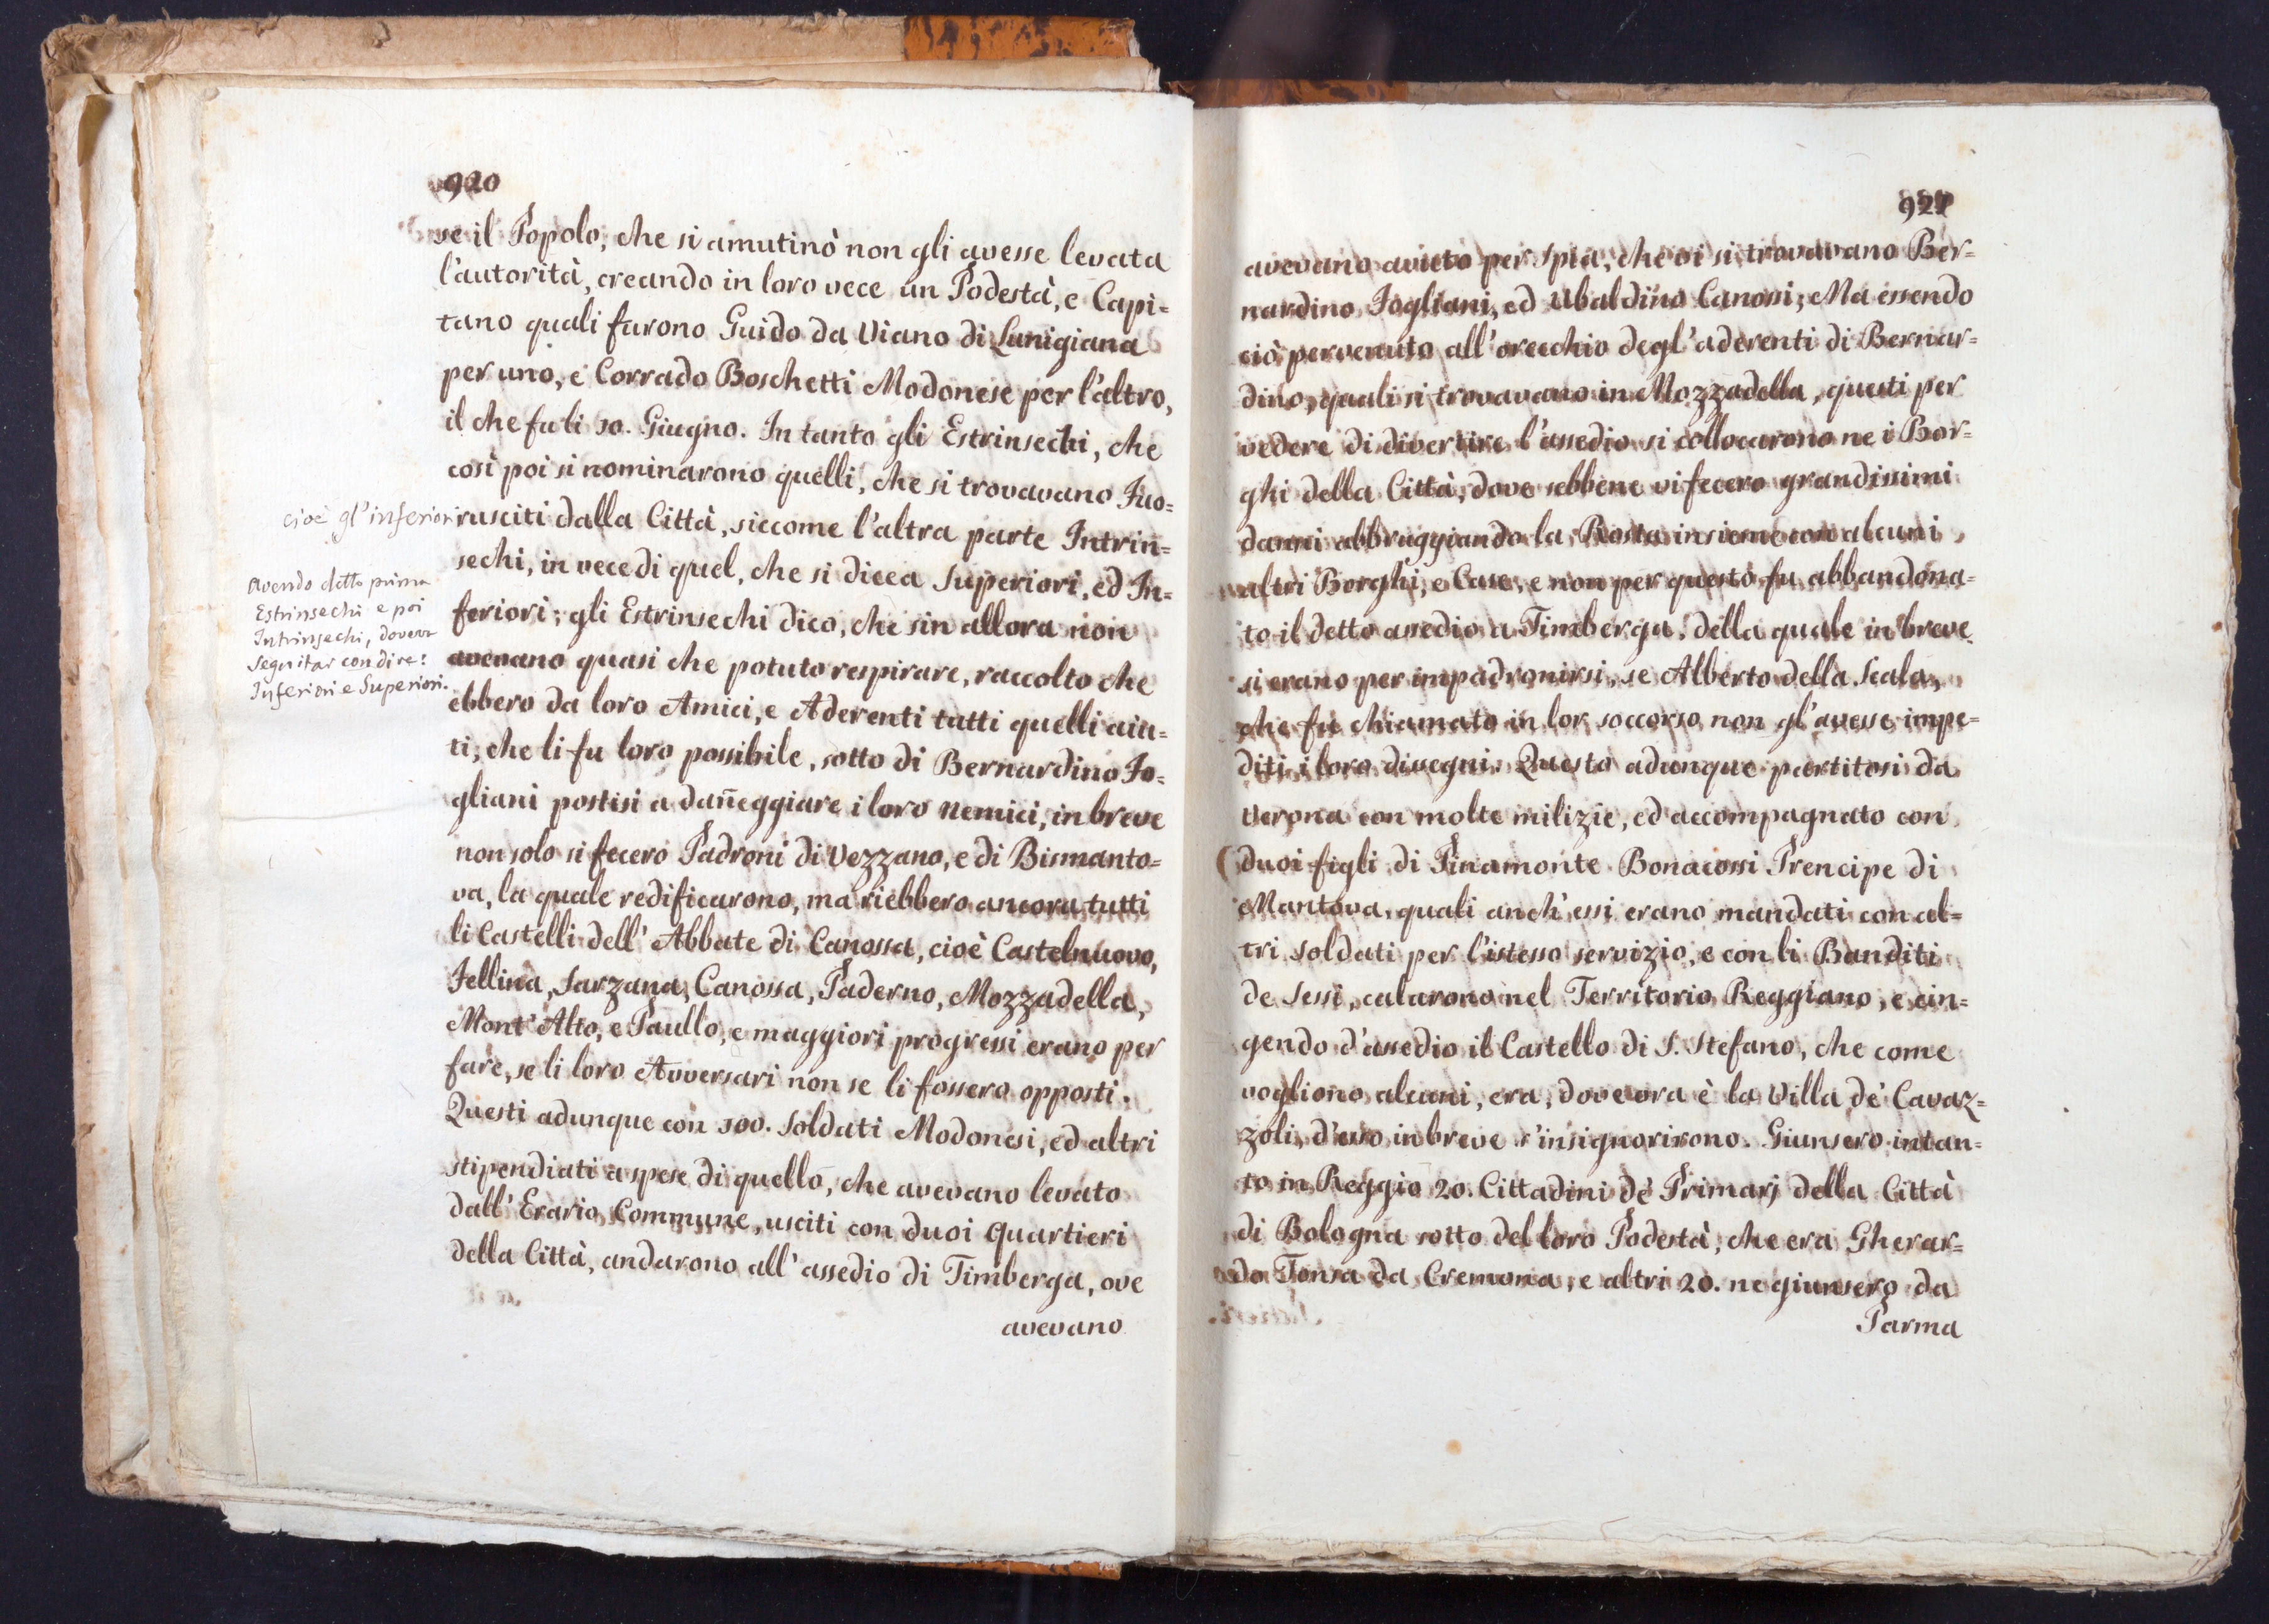 920
se il Popolo, che si amutinò non gli avesse levata
l'autorità, creando in loro vece un Podestà, e Capi=
tano quali furono Guido da Viano di Lunigiana
per uno, e Corrado Boschetti Modonese per l'altro,
il che fu li 30. Giugno. In tanto gli Estrinsechi, che
così poi si nominarono quelli, che si trovavano Fuo=
rusciti dalla Città, siccome l'altra parte Intrin=
sechi, in vece di quel, che si dicea Superiori, ed In=
feriori; gli Estrinsechi dico, che sin allora non
avevano quasi che potuto respirare, raccolto che
ebbero da loro Amici, e Aderenti tutti quelli aiu=
ti, che li fu loro possibile, sotto di Bernardino Fo=
gliani postisi a dañeggiare i loro nemici, in breve
non solo si fecero Padroni di Vezzano, e di Bismanto=
va, la quale redificarono, ma riebbero ancora tutti
li Castelli dell' Abbate di Canossa, cioè Castelnuovo,
Fellina, Sarzana, Canossa, Paderno, Mozzadella,
Mont' Alto, e Paullo, e maggiori progressi erano per
fare, se li loro Avversari non se li fossero opposti.
Questi adunque con 300. Soldati Modonesi, ed altri
stipendiati a spese di quello, che avevano levato
dall' Erario Commune, usciti con duoi Quartieri
della Città, andarono all' assedio di Timberga, ove
avevano
cioè gl'inferiori
Avendo detto prima
Estrinsechi e poi
Intrinsechi, dovea
seguitar con dire:
Inferiori e Superiori.
921
avevano avuto per spia, che vi si trovavano Ber=
nardino Fogliani, ed Ubaldino Canossi; Ma essendo
ciò pervenuto all'orecchio degl'aderenti di Bernar=
dino, quali si trovavano in Mozzadella, questi per
vedere di divertire l'assedio si collocarono ne i Bor=
ghi della Città, dove sebbene vi fecero grandissimi
danni abbruggiando la Rosta insieme con alcuni
altri Borghi, e Case, e non per questo fu abbandona=
to il detto assedio a Timberga, della quale in breve
si erano per impadronirsi, se Alberto della Scala,
che fu chiamato in lor soccorso non gl'avesse impe=
diti i loro disegni. Questo adunque partitosi da
Verona con molte milizie, ed accompagnato con
( duoi figli di Pinamonte Bonacossi Prencipe di
Mantova, quali anch'essi erano mandati con al=
tri Soldati per l'istesso servizio, e con li Banditi
de Sessi, calarono nel Territorio Reggiano, e cin=
gendo d'assedio il Castello di S. Stefano, che come
vogliono alcuni, era, dove ora è la Villa de' Cavaz=
zoli, d'esso in breve s'insignorirono. Giunsero intan=
to in Reggio 20. Cittadini de' Primarj della Città
di Bologna sotto del loro Podestà, che era Gherar=
do Tonsa da Cremona, e altri 20. ne giunsero da
Parma